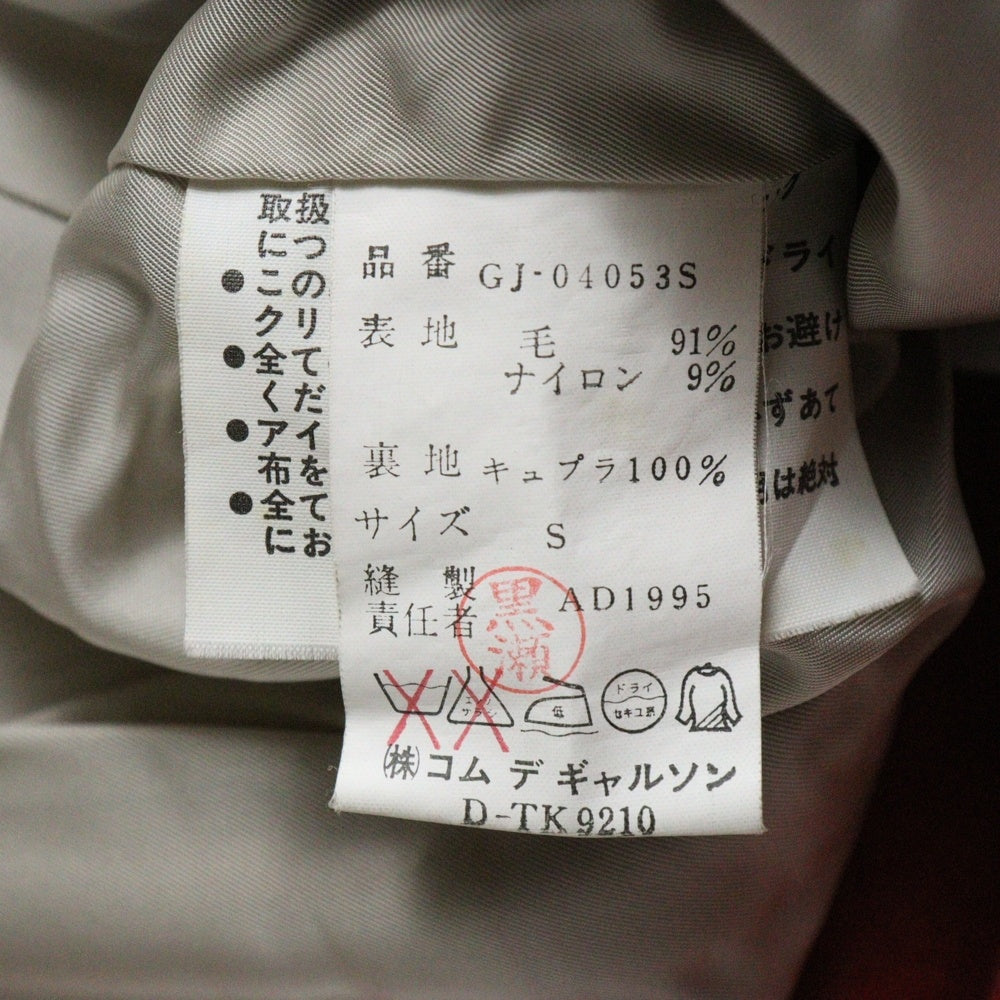 品番 GJ-04053S
表地 毛 91%
ナイロン 9%
裏地 キュプラ100%
サイズ S
縫製
責任者 AD1995
黒瀬
低
ドライ
セキユ系
㈱コム デ ギャルソン
D-TK9210
扱つのリてだイをてお
取にこク全くア布全に
ドライ
お避け
ずあて
は絶対